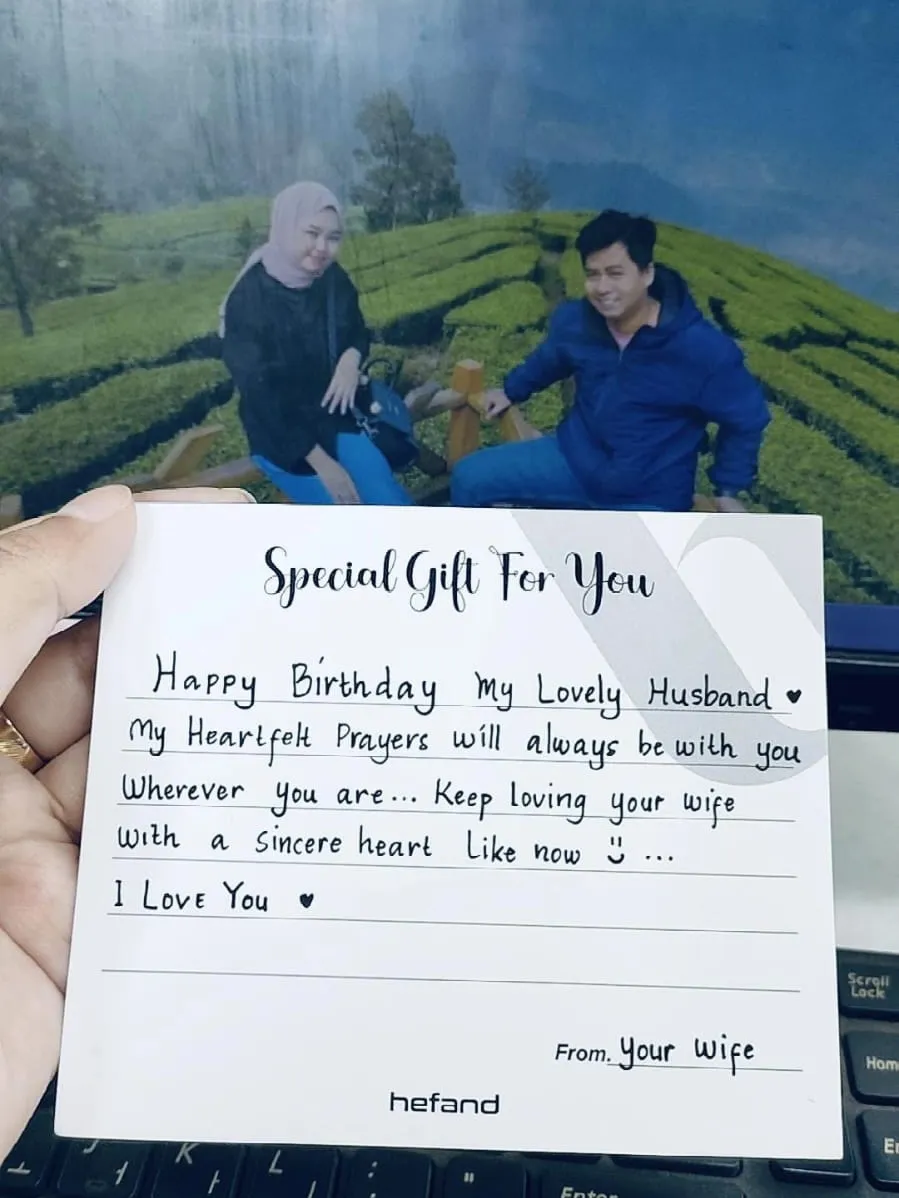 Special Gift For You
Happy Birthday My Lovely Husband ♥
My Heartfelt Prayers will always be with you
Wherever you are... Keep loving your wife
with a sincere heart like now ...
I Love You ♥
From. Your Wife
hefand
Scroll
Lock
Hom
En
J
K
L
:
;
"
Enter